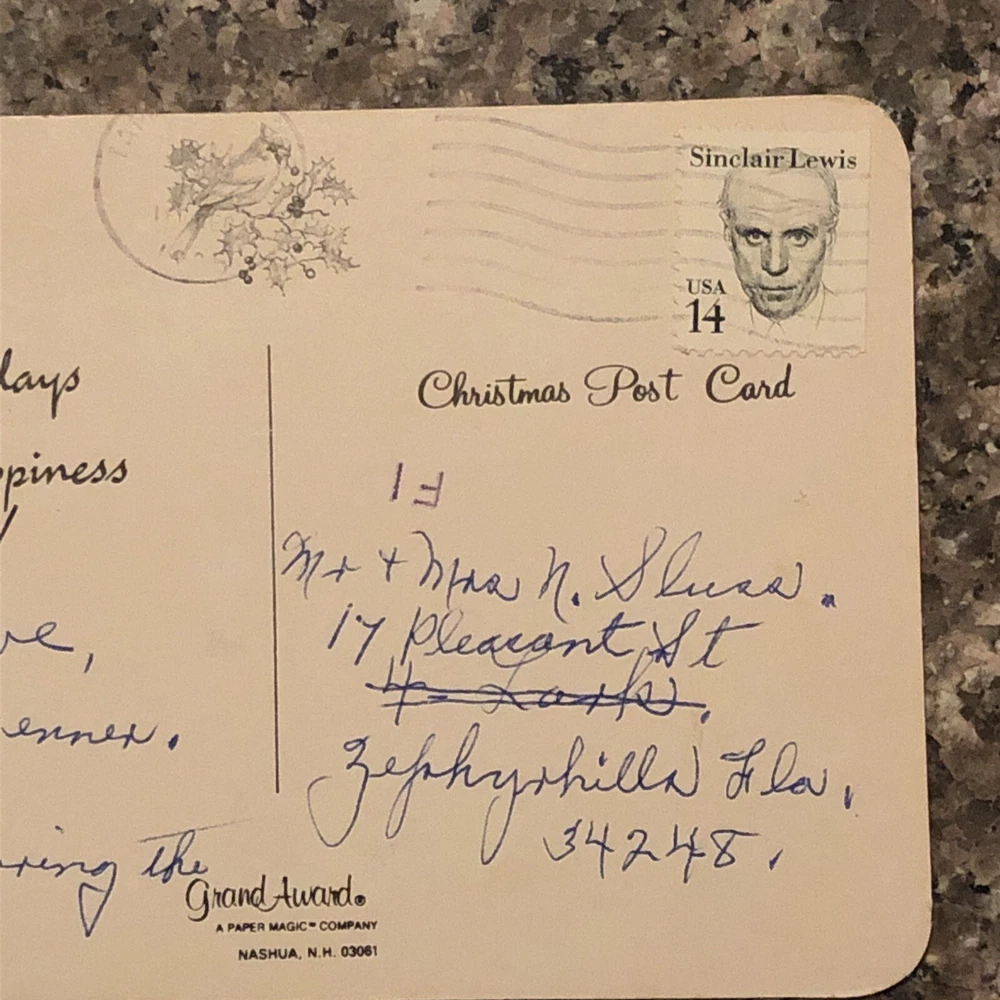 Sinclair Lewis
USA
14
lays
ppiness
Christmas Post Card
F1
Mr + Mrs N. Sluss.
17 Pleasant St
Zephyrhills Fla.
34248.
ve,
enner.
ring the
Grand Award®
A PAPER MAGIC™ COMPANY
NASHUA, N.H. 03061